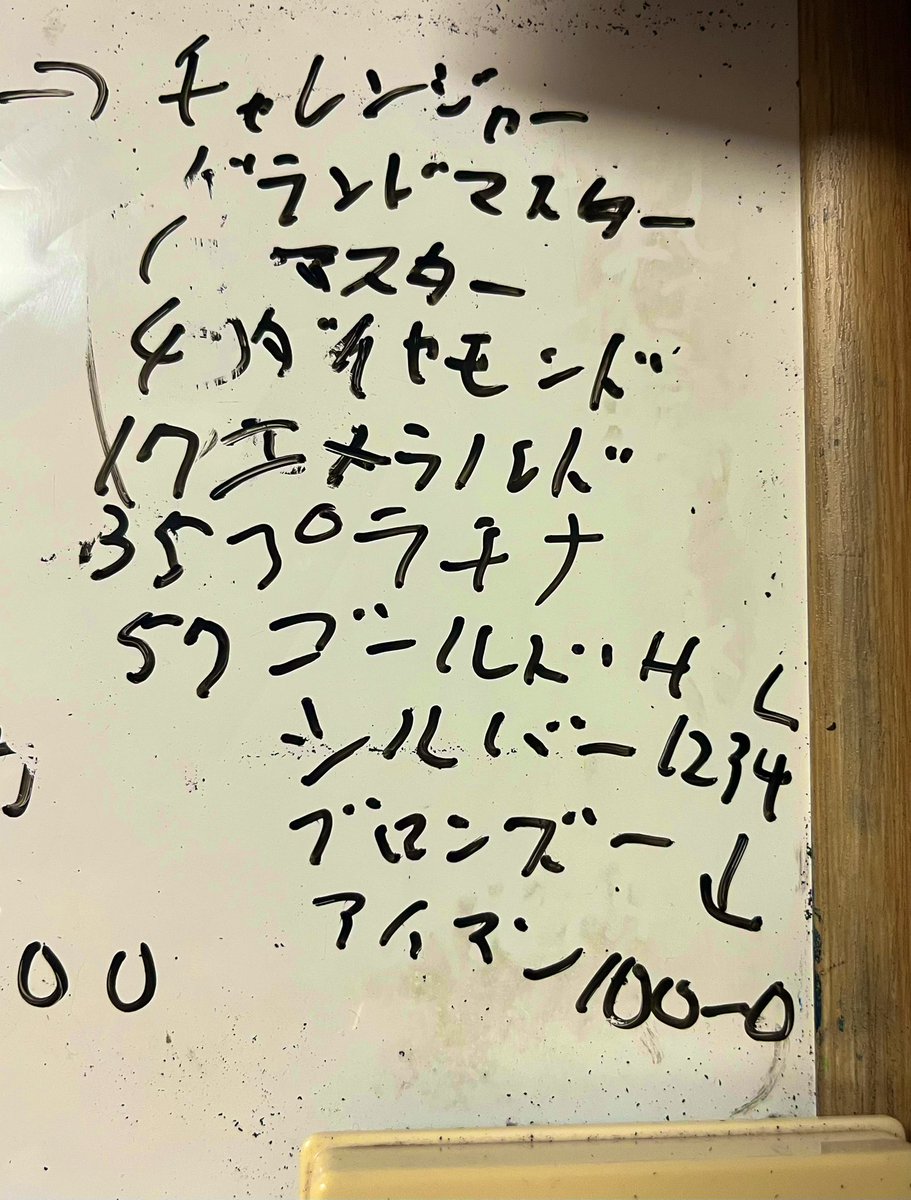 チャレンジャー
グランドマスター
マスター
4 ダイヤモンド
17 エメラルド
35 プラチナ
57 ゴールド H L
シルバー 1234
ブロンズー ↓
アイアン 100-0
00